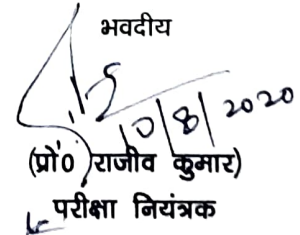 भवदीय
10/8/2020
(प्रो0 राजीव कुमार)
परीक्षा नियंत्रक